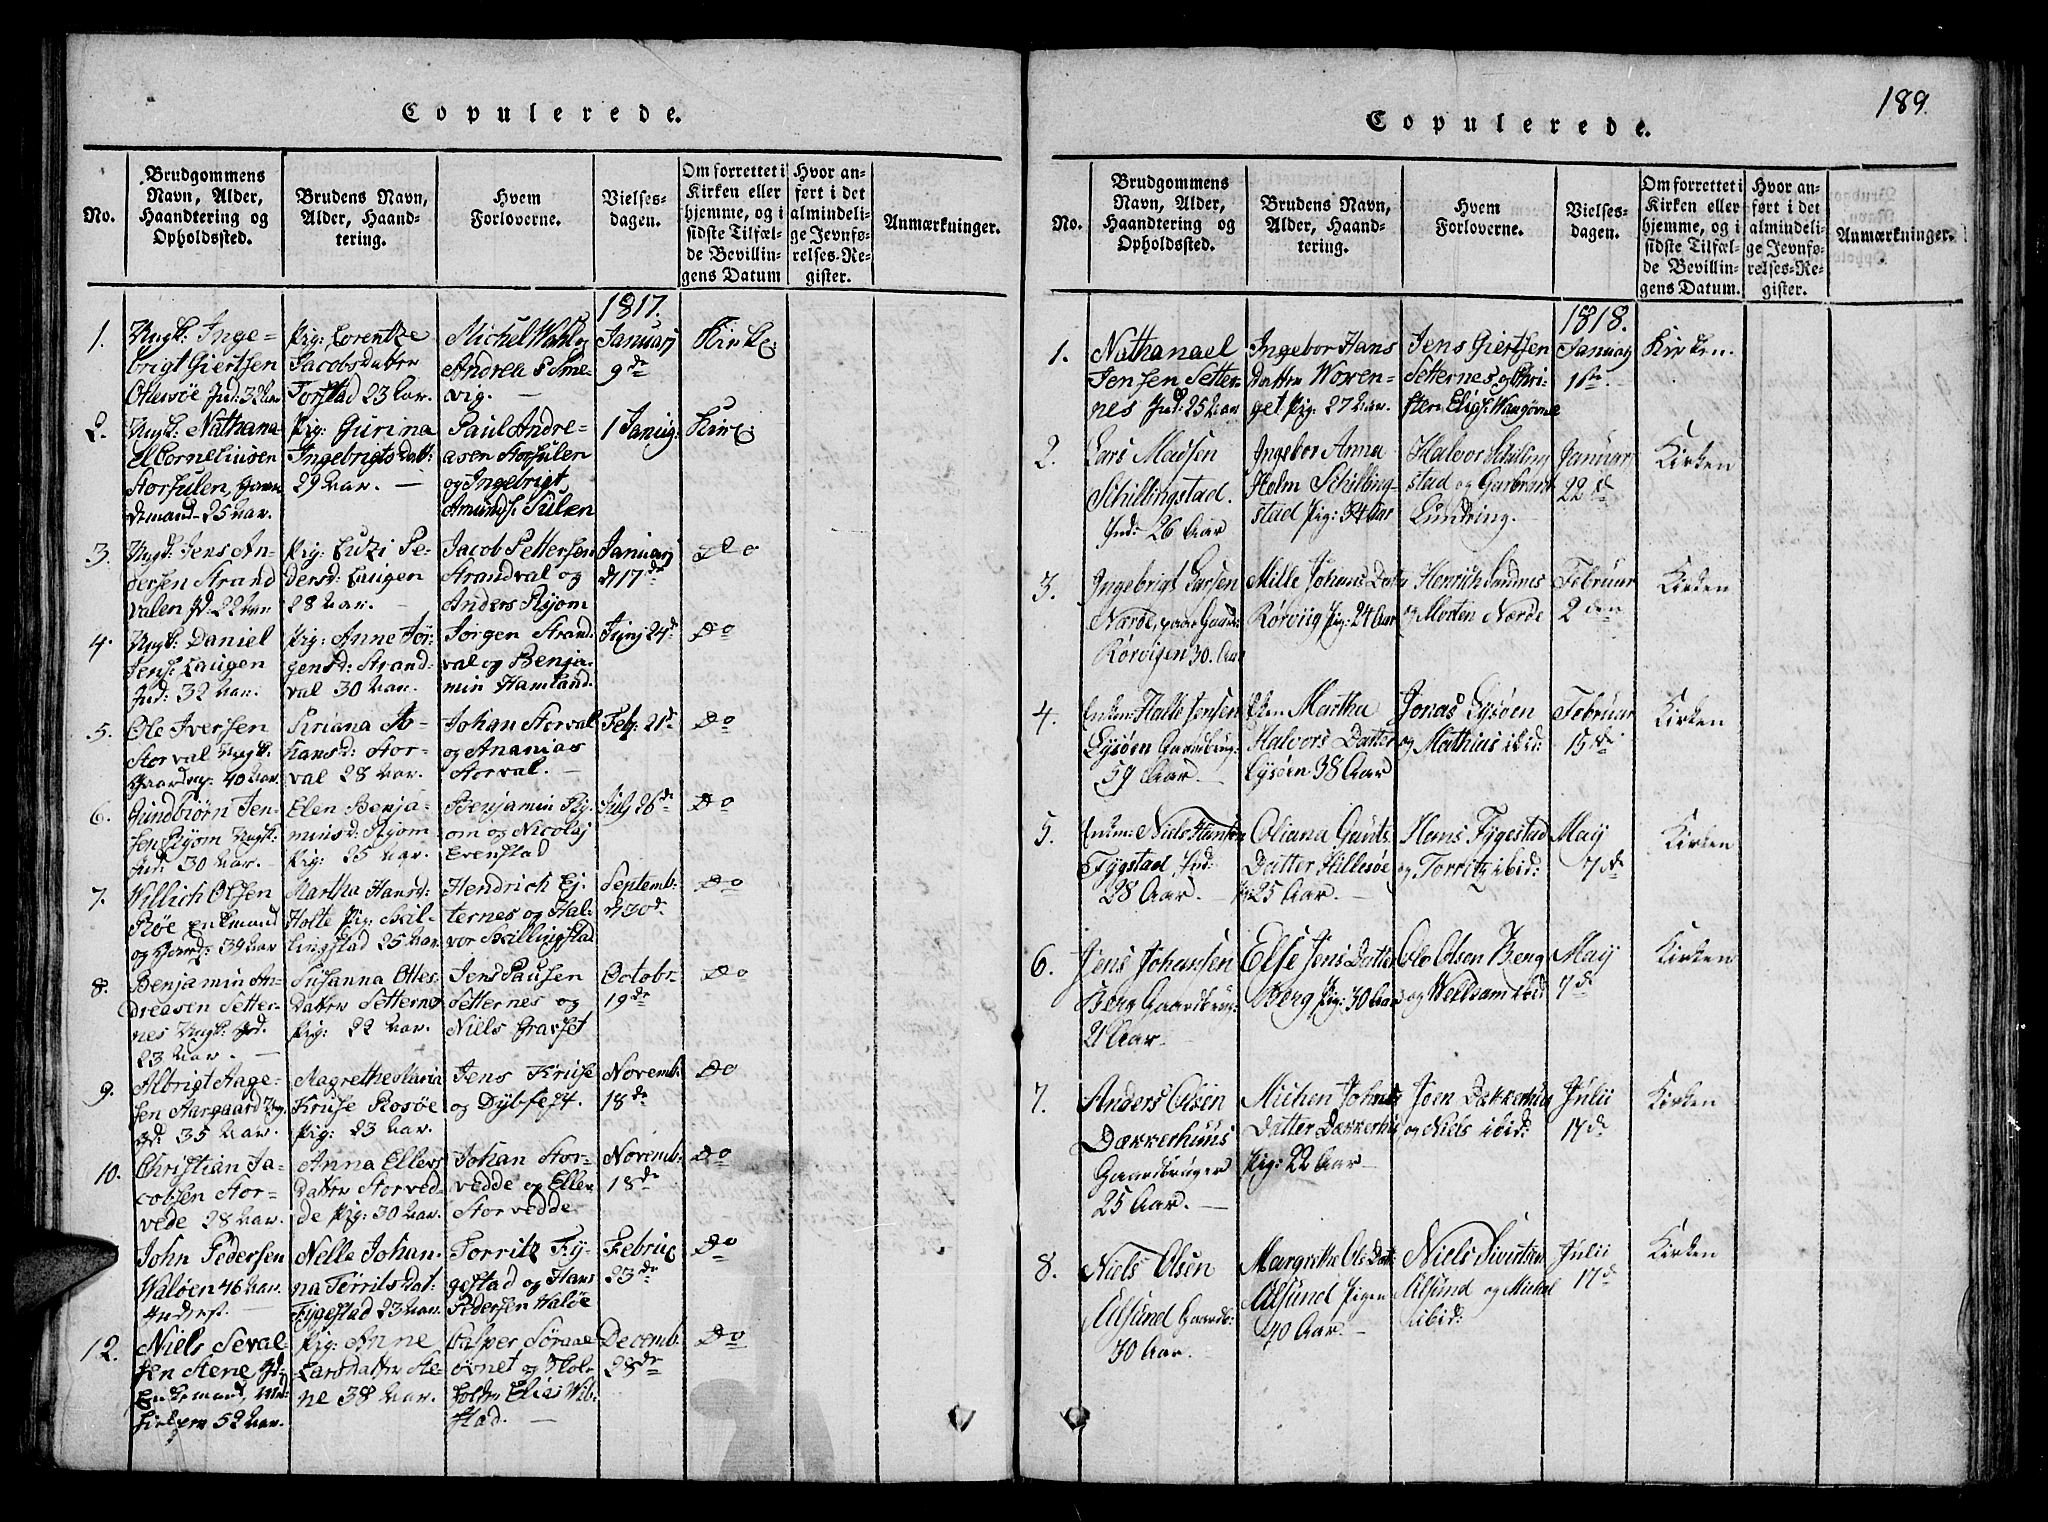 Copulerede.
No.
Brudgommens Navn, Alder, Haandtering og Opholdssted.
Brudens Navn, Alder, Haandtering.
Hvem Forloverne.
Vielsesdagen.
Om forrettet i Kirken eller hjemme, og i sidste Tilfælde Bevillingens Datum
Hvor anført i det almindelige Jevnførelses-Register.
Anmærkninger.
1817.
1.
Ungk: Inge-
brigt Giertsen
Ind: 32 Aar
Pig: Lorentze
Jacobsdatter
Torstad 23 Aar.
Michel Wahl og
Andrea S Sme-
vig.
Januarj
9de
Kirke
2.
Ungk: Nathana
el Corneliusen
Storsulen,
demand 25 Aar.
Pig: Gurina
Ingebrigts Datt:
29 Aar.
Paul Andre-
asen Storsulen
og Ingebrigt
Amunds: Sulen
1 Januj:
Kirke
3.
Ungk: Jens An-
dersen Strand
valen Jd. 22 Aar
Pig: Lutzi Pe-
dersd: Laugen
28 Aar.
Jacob Pettersen
Strandval og
Anders Ryom
Januarj
d 17de
Do
4.
Ungk: Daniel
Jens: Laugen
Ind: 32 Aar.
Pig: Anne Jör-
gensd: Strand-
val 30 Aar.
Jørgen Strand-
val og Benja-
min Hamland.
Junj 24d
Do
5.
Ole Iversen
Storval Ungk.
Gaardm: 40 Aar.
Siriana Jo-
hansd: Stor-
val 28 Aar.
Johan Storval
og Ananias
Storval.
Feb: 21de
Do
6.
Gundbiørn Jen-
sen Ryom Ungk:
Ind: 30 Aar.
Elen Benja-
minsd: Ryom
Pig: 25 Aar.
Benjamin Ry-
om og Nicolaj
Evenstad
July 26de
Do
7.
Willich Olsen
Röe Enkemand
og Gaard: 39 Aar
Martha Hansd:
Holte Pig: Skil-
lingstad 25 Aar.
Hendrich Ej-
ternes og Hal-
vor Skillingstad
Septemb:
d 30d.
Do
8.
Benjamin An-
dreasen Setter-
nes Ungk: Ind.
23 Aar.
Susanna Olles-
Datter Setternes
Pig: 22 Aar.
Jens Pausen
Setternes og
Niels Grasset
Octobr.
19de
Do
9.
Albrigt Aage-
sen Aargaard Ung
Jd. 35 Aar.
Magrethe Maria
Kruse Rosøe
Pig: 23 Aar.
Jens Kruse
og Dybfest.
Novemb:
18de
Do
10.
Christian Ja-
cobsen Stor-
vede 28 Aar.
Anna Ellevs
Datter Storved-
de Pig: 30 Aar.
Johan Stor-
vedde og Ellev
Storvedde
Novemb:
18de
Do
John Pedersen
Waløen 46 Aar.
Nelle Johan-
na Torrits Dat-
Fygestad 23 Aar.
Torritz Fy-
gestad og Hans
Pedersen Haløe
Februj
23de
Do
12.
Niels Seval-
sen Stene Jd:
Enkemand,
52 Aar.
Pig: Anne
Larsdatter Ste-
ne 38 Aar.
Casper Söraae
Elias Wib-
stad.
Decemb:
28de
Do
189.
Copulerede.
No.
Brudgommens Navn, Alder, Haandtering og Opholdssted.
Brudens Navn, Alder, Haandtering.
Hvem Forloverne.
Vielsesdagen.
Om forrettet i Kirken eller hjemme, og i sidste Tilfælde Bevillingens Datum.
Hvor anført i det almindelige Jevnførelses-Register.
Anmærkninger.
1818.
1.
Nathanael
Jensen Setter-
nes Ind: 25 Aar
Ingebor Hans
Datter Woxen-
get Pig: 27 Aar.
Jens Giertsen
Setternes og Chri-
sten Elias:
Januarj
1ste
Kirken.
2.
Lars Madsen
Schillingstad.
Ind: 26 Aar
Ingebor Anna
Holm Schilling-
stad Pig: 34 Aar
Halvor Schiling-
stad og Garbrant
Lundring.
Januar
22d
Kirken
3.
Ingebrigt Larsen
Nærde, paa Gaard
Rørvigen 30. Aar
Mille Johans Datter
Rørviig Pig: 24 Aar
Henrich Sundnes
og Morten Nærde
Februar
2den
Kirken
4.
Enkm: Halle Jensen
Lysøen Gaardbrug:
59 Aar.
Eken Martha
Halvors Datter
Lysøen 38 Aar
Jonas Lysøen
og Mathias ibid:
Februar
15de
Kirken
5.
Enkm: Niels Hansen
Fygstad Ind:
28 Aar.
Oliana Gauts
Datter Hillesøe
25 Aar.
Hans Fygestad
og Torritz ibid:
May
7de
Kirken
6.
Jens Johansen
Berg Gaardbrug:
21 Aar.
Else Jens Datter
Berg Pig: 30 Aar
Ole Olsen Berg
og Wellsam ibid
May
7d
Kirken
7.
Anders Olsen
Dækkerhuus
Gaardbruger
25 Aar.
Michen Johns
Datter Dækkerhus
Pig: 22 Aar.
Joen Dækkerhus
og Niels ibid:
Julii
17de
Kirken
8.
Niels Olsen
Alsund Gaardb:
30 Aar.
Margrethe Ols Datt:
Alsund Pigen
40 Aar.
Niels Sivertsen
Alsund og Michel
ibid:
Julii
17d
Kirken